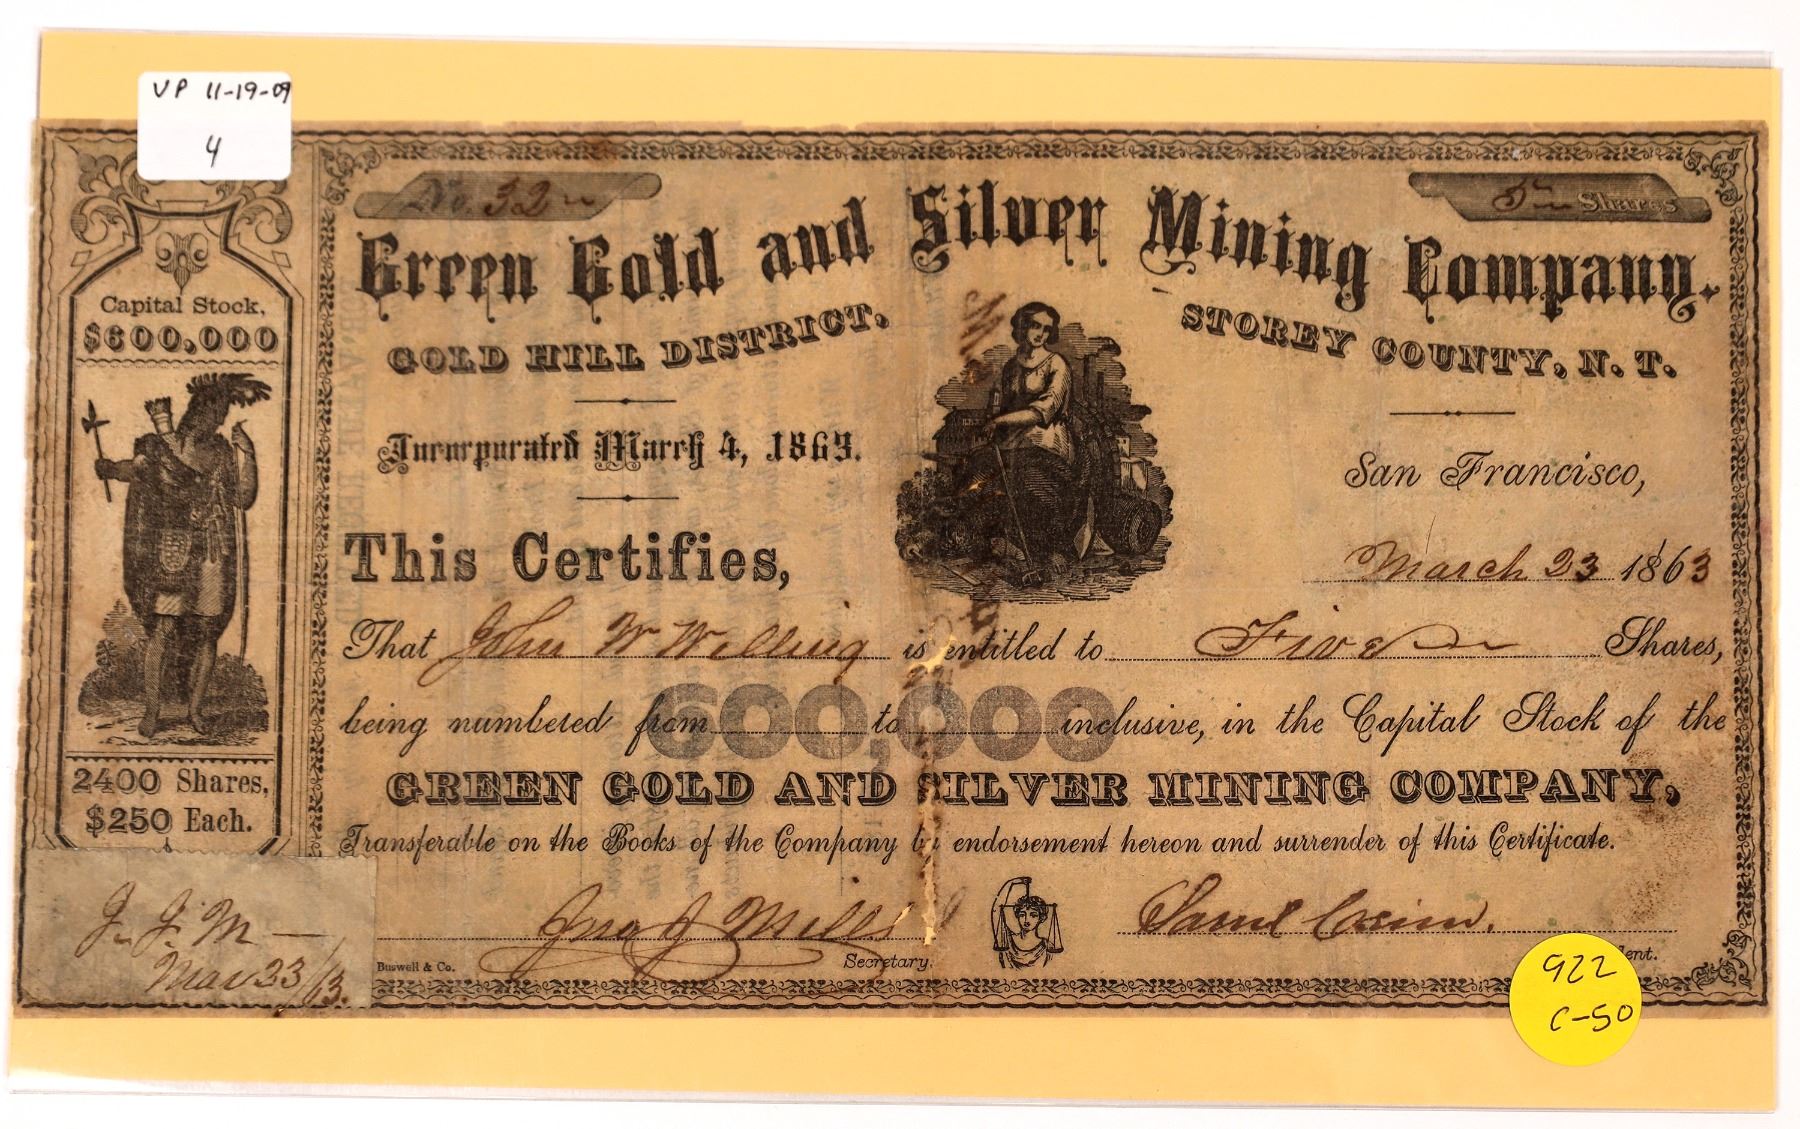 VP 11-19-09
4
No. 32
5 Shares
Green Gold and Silver Mining Company.
GOLD HILL DISTRICT.
STOREY COUNTY, N. T.
Capital Stock,
$600,000
Incorporated March 4, 1863.
San Francisco,
March 23 1863
This Certifies,
That John W Willing is entitled to Five Shares,
being numbered from to inclusive, in the Capital Stock of the
600,000
GREEN GOLD AND SILVER MINING COMPANY,
2400 Shares,
$250 Each.
Transferable on the Books of the Company by endorsement hereon and surrender of this Certificate.
J. J. M
Mar 23/63.
Jno J Mills
Buswell & Co.
Secretary.
ent.
922
C-50